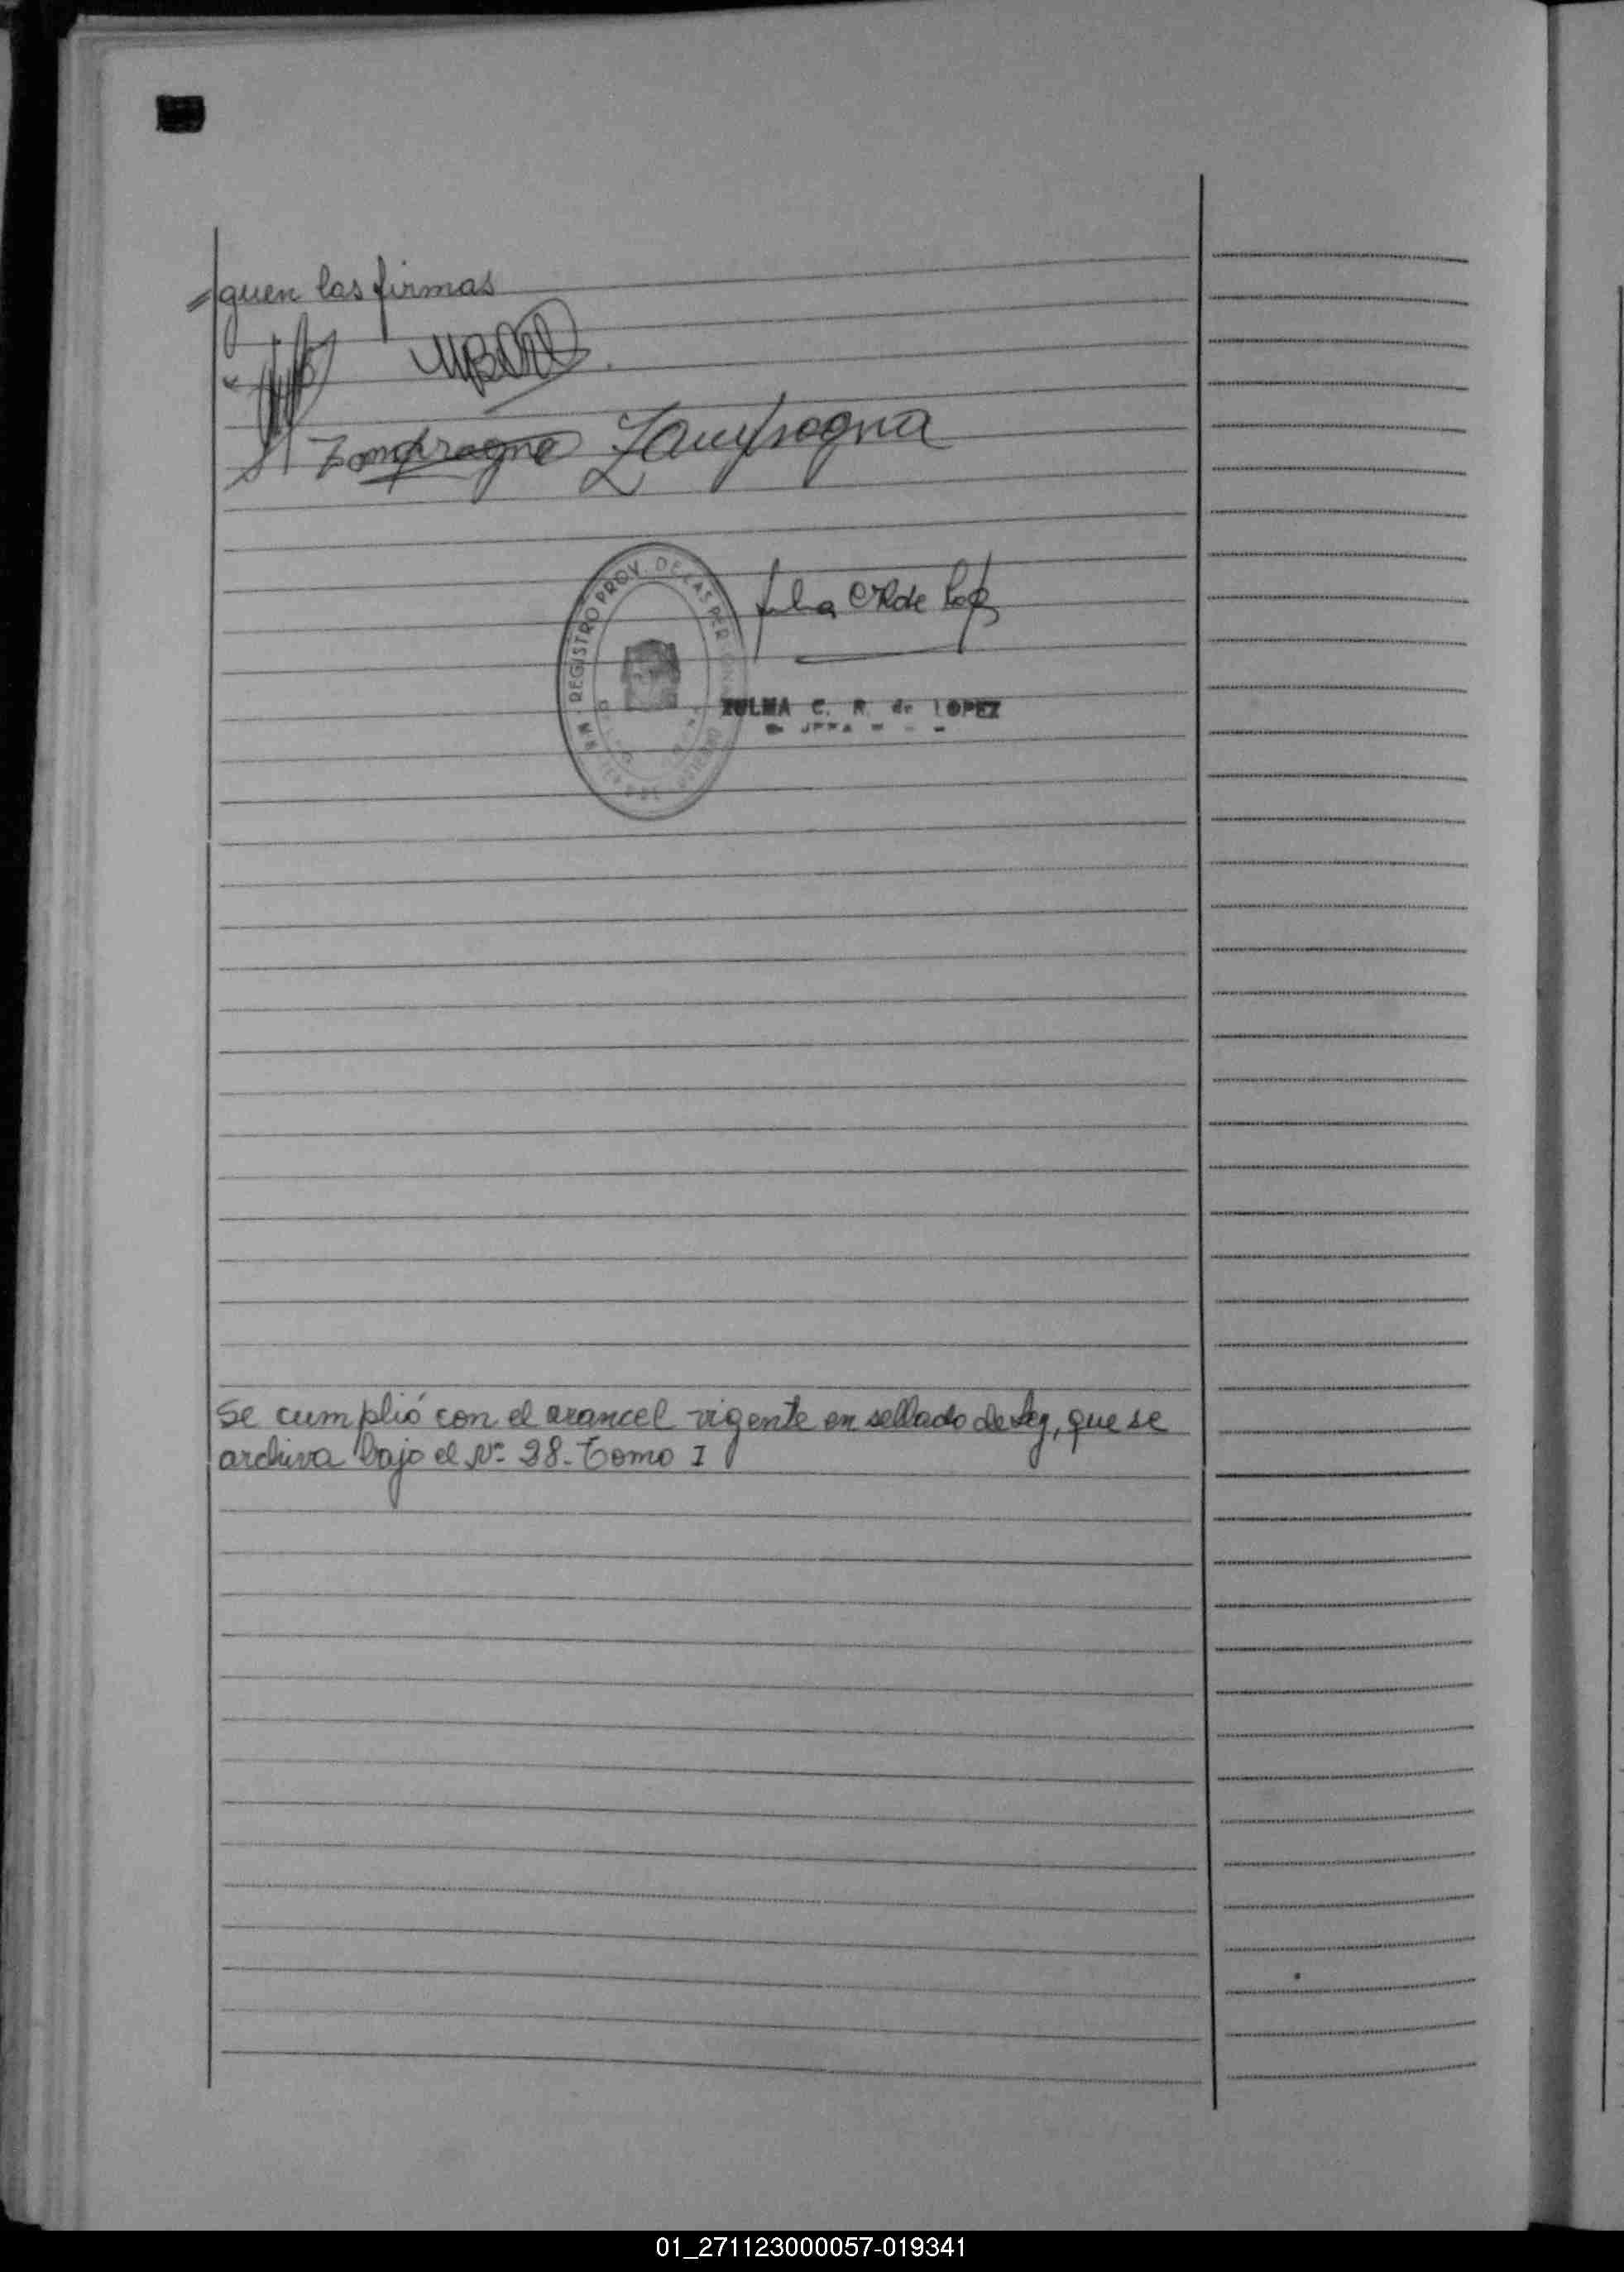 =guen las firmas
Zampragna Zampogna
REGISTRO PROV. DE LAS PER
ZULMA C. R. de LOPEZ
Se cumplió con el arancel vigente en sellado de Ley, que se
archiva bajo el Nº 28. Tomo I
01_271123000057-019341